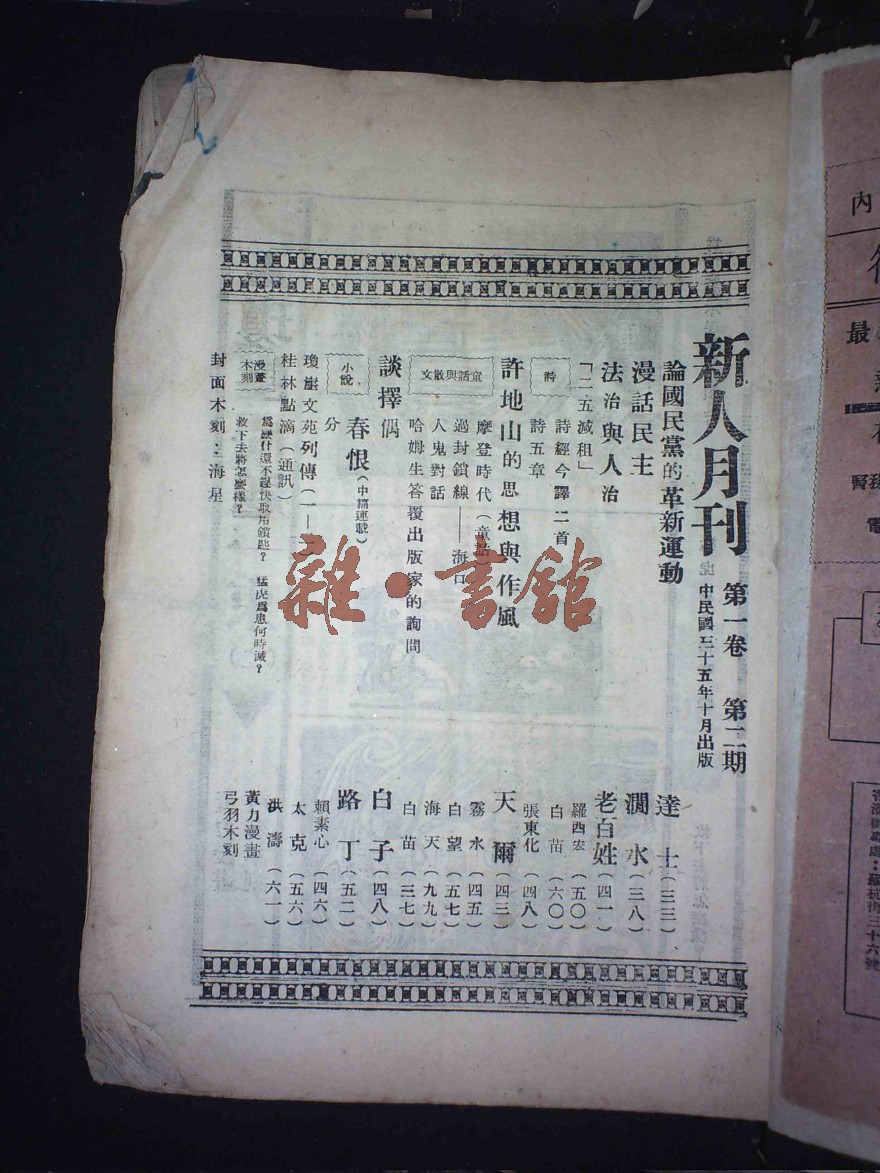 新人月刊 第一卷 第二期
中民國三十五年十月出版
論國民黨的革新運動 達士(三三)
漫話民主 澗水(三八)
法治與人治 老百姓(四一)
「二五減租」 羅西宏(五〇)
詩
詩經今譯二首 白苗(六〇)
詩五章 張東化(四八)
許地山的思想與作風 天爾(四三)
童話與散文
摩登時代(童話) 霧水(四五)
過封鎖線——海口 白望(五七)
人鬼對話 海天(九九)
哈姆生答覆出版家的詢問 白苗(三七)
談擇偶 白子(四八)
小說
春恨(中篇連載) 路丁(五二)
分 賴素心(四六)
瓊崖文苑列傳(一 太克(五六)
桂林點滴(通訊) 洪濤(六一)
漫畫木刻
為麼什還不趕快取用鎖匙? 猛虎為患何時滅? 黃力漫畫
救下去將怎麼樣? 弓羽木刻
封面木刻:海星
雜·書館
內
最
電
蘇杭街三十六號